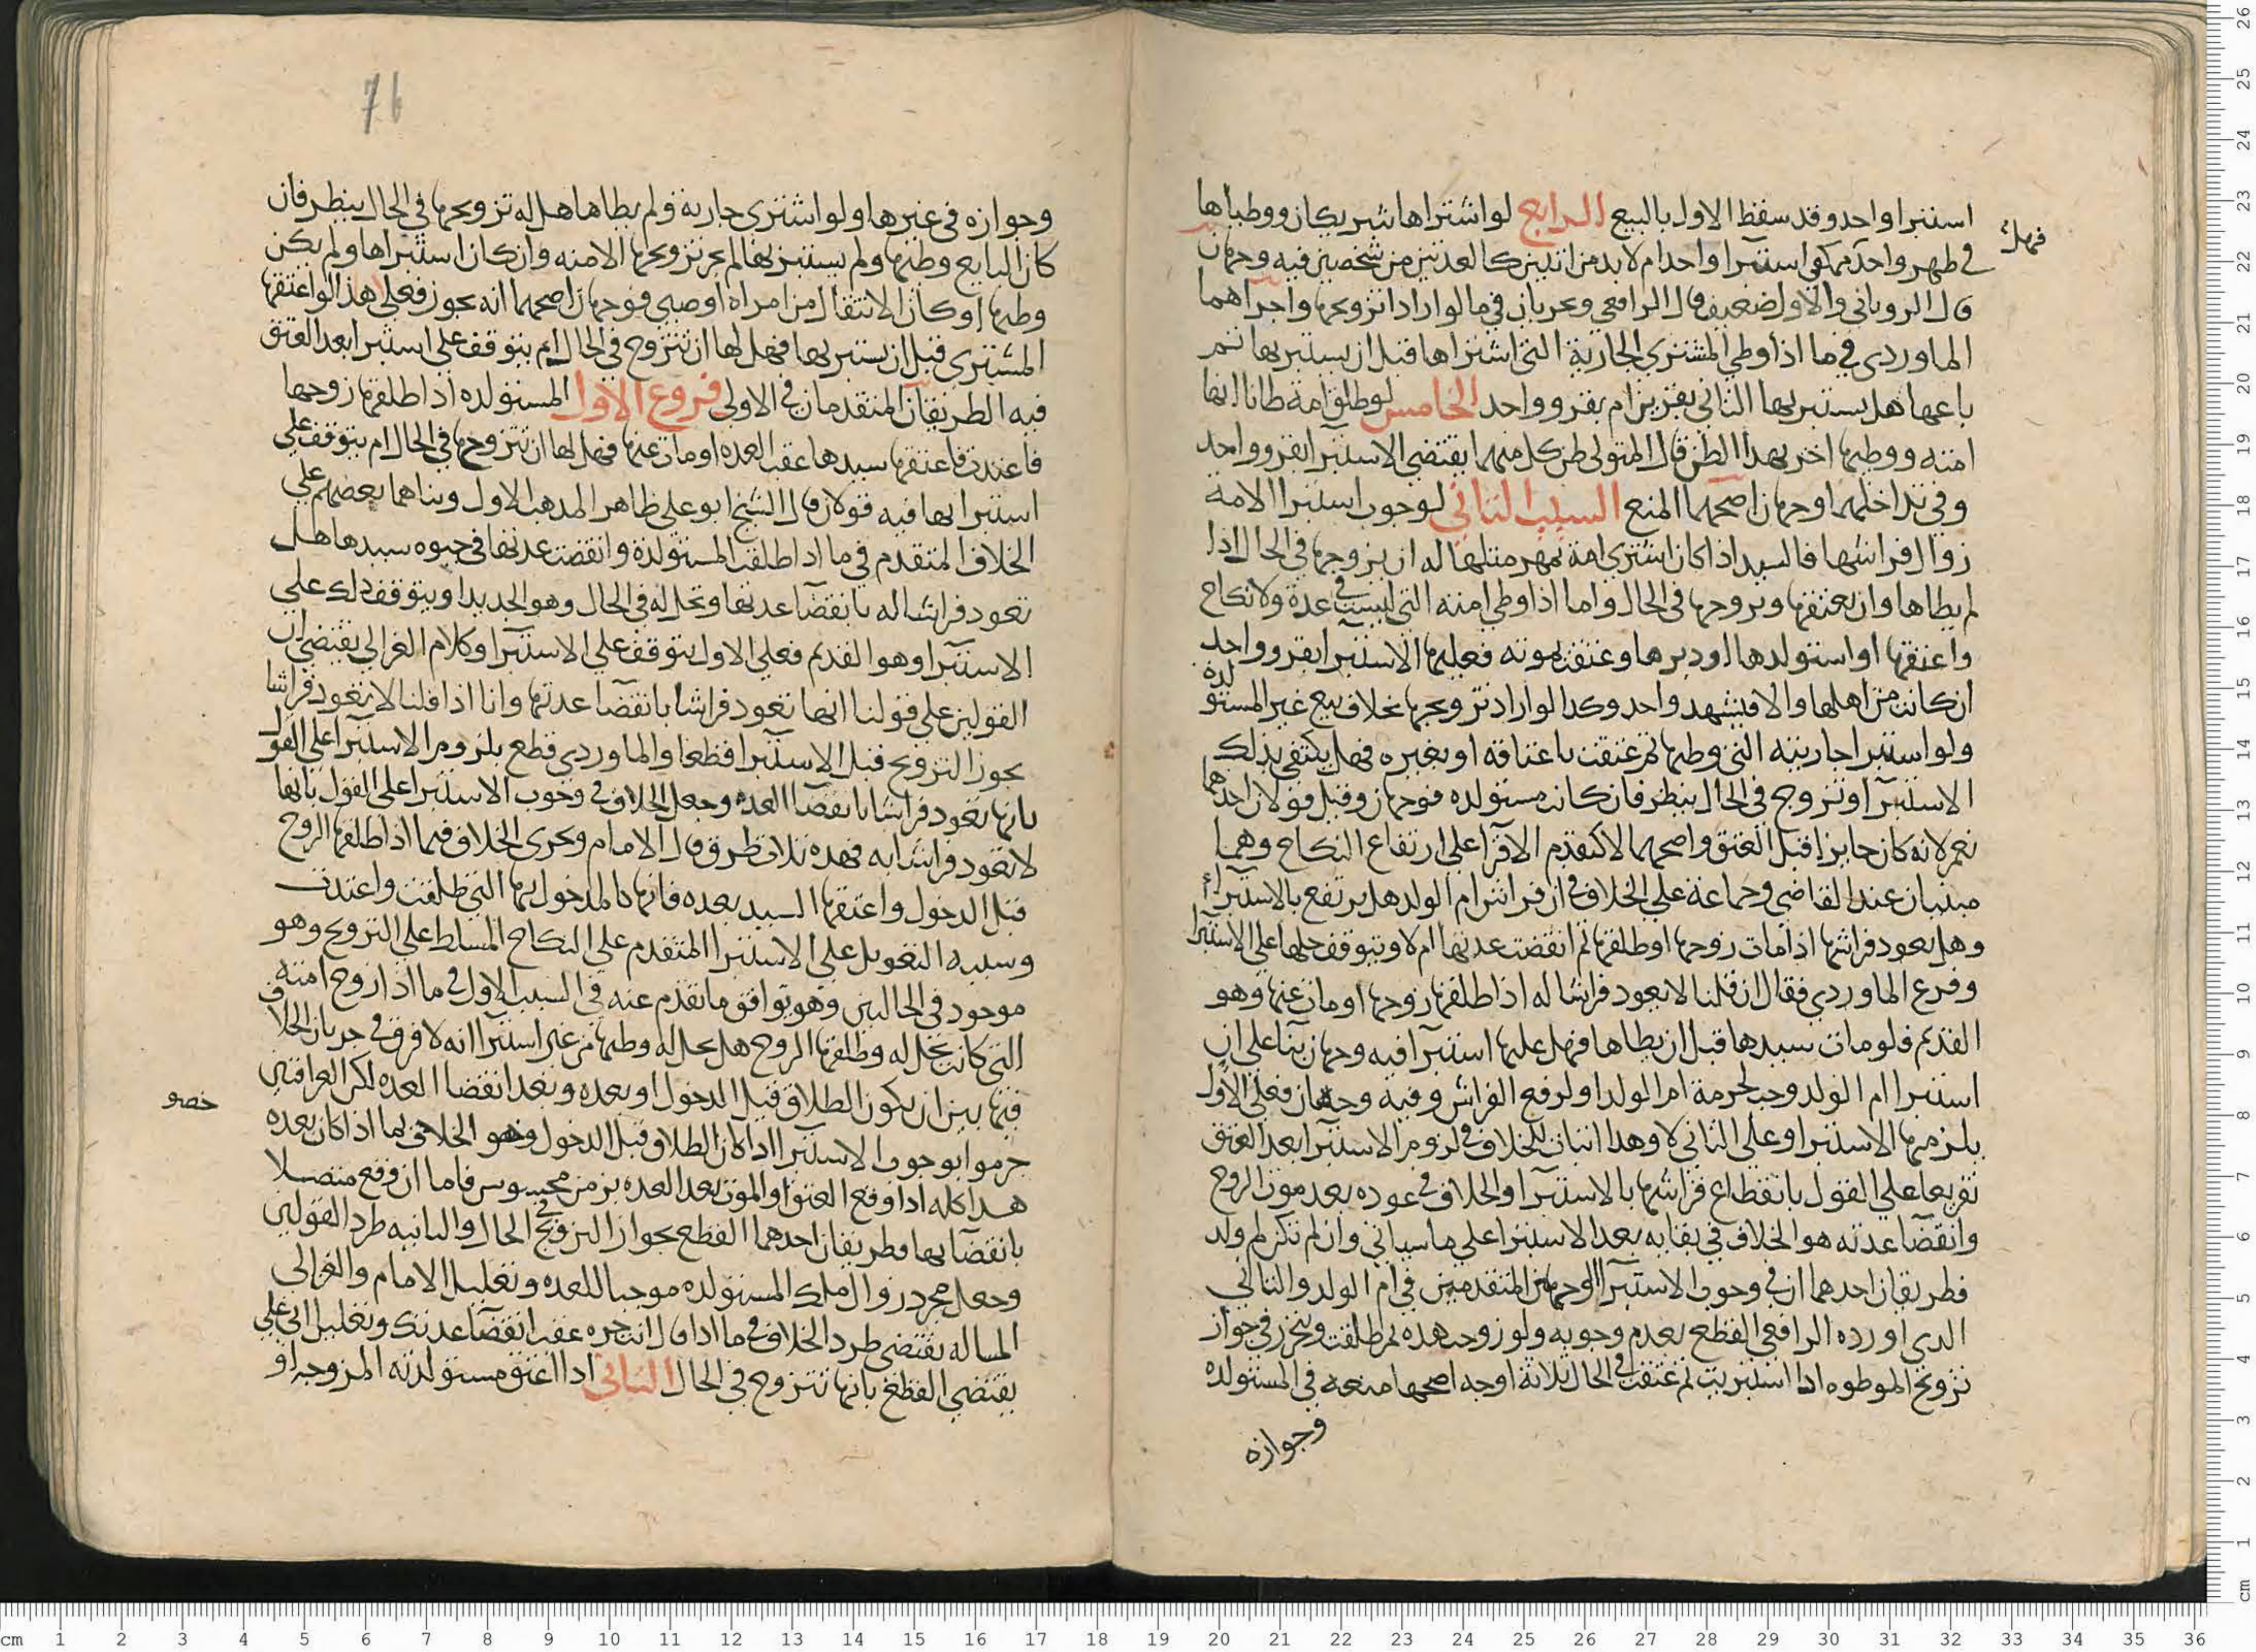 استبرا واحد وقد سقط الاول بالبيع الرابع لو اشتراها شريكان ووطياها
فهل
في طهر واحد يكفي استبرا واحد ام لا بد من اثنين كالعدتين من شخصين فيه وجهان
قال الروياني والاول ضعيف قال الرافعي ويجريان في ما لو ارادا تزويجها واجراهما
الماوردي في ما اذا وطي المشتري الجارية التي اشتراها قبل ان يستبريها ثم
باعها هل يستبريها الثاني بقرين ام بقرو واحد الخامس لو طلق امة ظانا انها
امته ووطيها اخر بهذا الظن قال المتولي ظن كل منهما يقتضي الاستبرا بقرو واحد
وفي تداخلهما وجهان اصحهما المنع السبب الثاني لوجوب استبرا الامة
زوال فراشها فالسيد اذا كان اشتري امة بمهر مثلها له ان يزوجها في الحال اذا
لم يطاها وان يعتقها ويزوجها في الحال واما اذا وطي امته التي ليست في عدة ولا نكاح
واعتقها او استولدها او دبرها وعتقت بموته فعليها الاستبرا بقرو واحد
ان كانت من اهلها والا فبشهر واحد وكذا لو اراد تزويجها بخلاف بيع غير المستولدة
ولو استبرا جاريته التي وطيها ثم عتقت باعتاقه او بغيره فهل يكتفي بذلك
الاستبرا وتزوج في الحال ينظر فان كانت مستولده فوجهان وقيل قولان احدهما
نعم لانه كان جايزا قبل العتق واصحهما لا كتقدم الاقرا على ارتفاع النكاح وهما
مبنيان عند القاضي وجماعة على الخلاف في ان فراش ام الولد هل يرتفع بالاستبراء
وهل يعود فراشها اذا مات زوجها او طلقها ثم انقضت عدتها ام لا ويتوقف حلها على الاستبرا
وفرع الماوردي فقال ان قلنا لا يعود فراشا له اذا طلقها زوجها او مات عنها وهو
القديم فلو مات سيدها قبل ان يطاها فهل عليها استبرا فيه وجهان بنا على ان
استبرا ام الولد وجب لحرمة ام الولد او لرفع الفراش وفيه وجهان فعلى الاول
يلزمها الاستبرا وعلى الثاني لا وهذا اثبات للخلاف في لزوم الاستبرا بعد العتق
تفريعا على القول بانقطاع فراشها بالاستبرا والخلاف في عوده بعد موت الزوج
وانقضا عدته هو الخلاف في بقايه بعد الاستبرا على ما سياتي وان لم تكن ام ولد
فطريقان احدهما ان في وجوب الاستبرا الوجهين المتقدمين في ام الولد والثاني
الذي اورده الرافعي القطع بعدم وجوبه ولو زوجت هذه ثم طلقت ويتحرر في جواز
تزويج الموطوه اذا استبريت ثم عتقت في الحال ثلاثة اوجه اصحها منعه في المستولده
وجوازه
76
وجوازه في غيرها ولو اشتري جارية ولم يطاها هل له تزويجها في الحال ينظر فان
كان البايع وطيها ولم يستبريها لم يجز تزويجها الا منه وان كان استبراها ولم يكن
وطيها او كان الانتقال من امراه او صبي فوجهان اصحهما انه يجوز فعلى هذا لو اعتقها
المشتري قبل ان يستبريها فهل لها ان تتزوج في الحال ام يتوقف على استبرا بعد العتق
فيه الطريقان المتقدمان في الاولى فروع الاول المستولده اذا طلقها زوجها
فاعتدت فاعتقها سيدها عقب العده او مات عنها فهل لها ان تتزوجها في الحال ام يتوقف على
استبرايها فيه قولان قال الشيخ ابو علي ظاهر المذهب الاول وبناهما بعضهم على
الخلاف المتقدم في ما اذا طلقت المستولدة وانقضت عدتها في حيوه سيدها هل
تعود فراشا له بانقضا عدتها وتحل له في الحال وهو الجديد او يتوقف ذلك على
الاستبرا وهو القديم فعلى الاول يتوقف على الاستبرا وكلام الغزالي يقتضي ان
القولين على قولنا انها تعود فراشا بانقضا عدتها وانا اذا قلنا لا تعود فراشا
يجوز التزويج قبل الاستبرا قطعا والماوردي قطع بلزوم الاستبرا على القول
بانها تعود فراشا بانقضا العده وجعل الخلاف في وجوب الاستبرا على القول بانها
لا تعود فراشا به فهذه ثلاث طرق قال الامام ويجري الخلاف فيما اذا طلقها الزوج
قبل الدخول واعتقها السيد بعده فانها كالمدخول بها التي طلقت واعتدت
وسببه التعويل على الاستبرا المتقدم على النكاح المسلط على التزويج وهو
موجود في الحالين وهو يوافق ما تقدم عنه في السبب الاول في ما اذا زوج امته
التي كانت تحل له وطلقها الزوج هل يحل له وطيها من غير استبرا انه لا فرق في جريان الخلاف
فيها بين ان يكون الطلاق قبل الدخول او بعده وبعد انقضا العده لكن العراقيين
جزموا بوجوب الاستبرا اذا كان الطلاق قبل الدخول وهو الخلاف بما اذا كان بعده
خصو
هذا كله اذا وقع العتق او الموت بعد العده بزمن محسوس فاما ان وقع متصلا
بانقضايها فطريقان احدهما القطع بجواز التزويج في الحال والثانيه طرد القولين
وجعل مجرد زوال ملك المستولده موجبا للعده وتعليل الامام والغزالي
المساله يقتضي طرد الخلاف في ما اذا قال انت حره عقب انقضا عدتك وتعليل ابي علي
يقتضي القطع بانها تتزوج في الحال الثاني اذا اعتق مستولدته المزوجه او